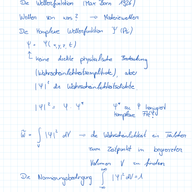 Die Wellenfunktion (Max Born 1926)
Wellen von was? → Materiewellen
Die komplexe Wellenfunktion Ψ (Psi)
Ψ = Ψ(x,y,z,t)
keine direkte physikalische Bedeutung
(Wahrscheinlichkeitsamplitude), aber
|Ψ|² die Wahrscheinlichkeitsdichte
|Ψ|² = Ψ · Ψ* Ψ* zu Ψ konjugiert
komplexe
W = ∫ |Ψ|² dV → die Wahrscheinlichkeit ein Teilchen
V
zum Zeitpunkt in begrenztem
Volumen V zu finden
Die Normierungsbedingung ∫∫∫ |Ψ|² dV = 1